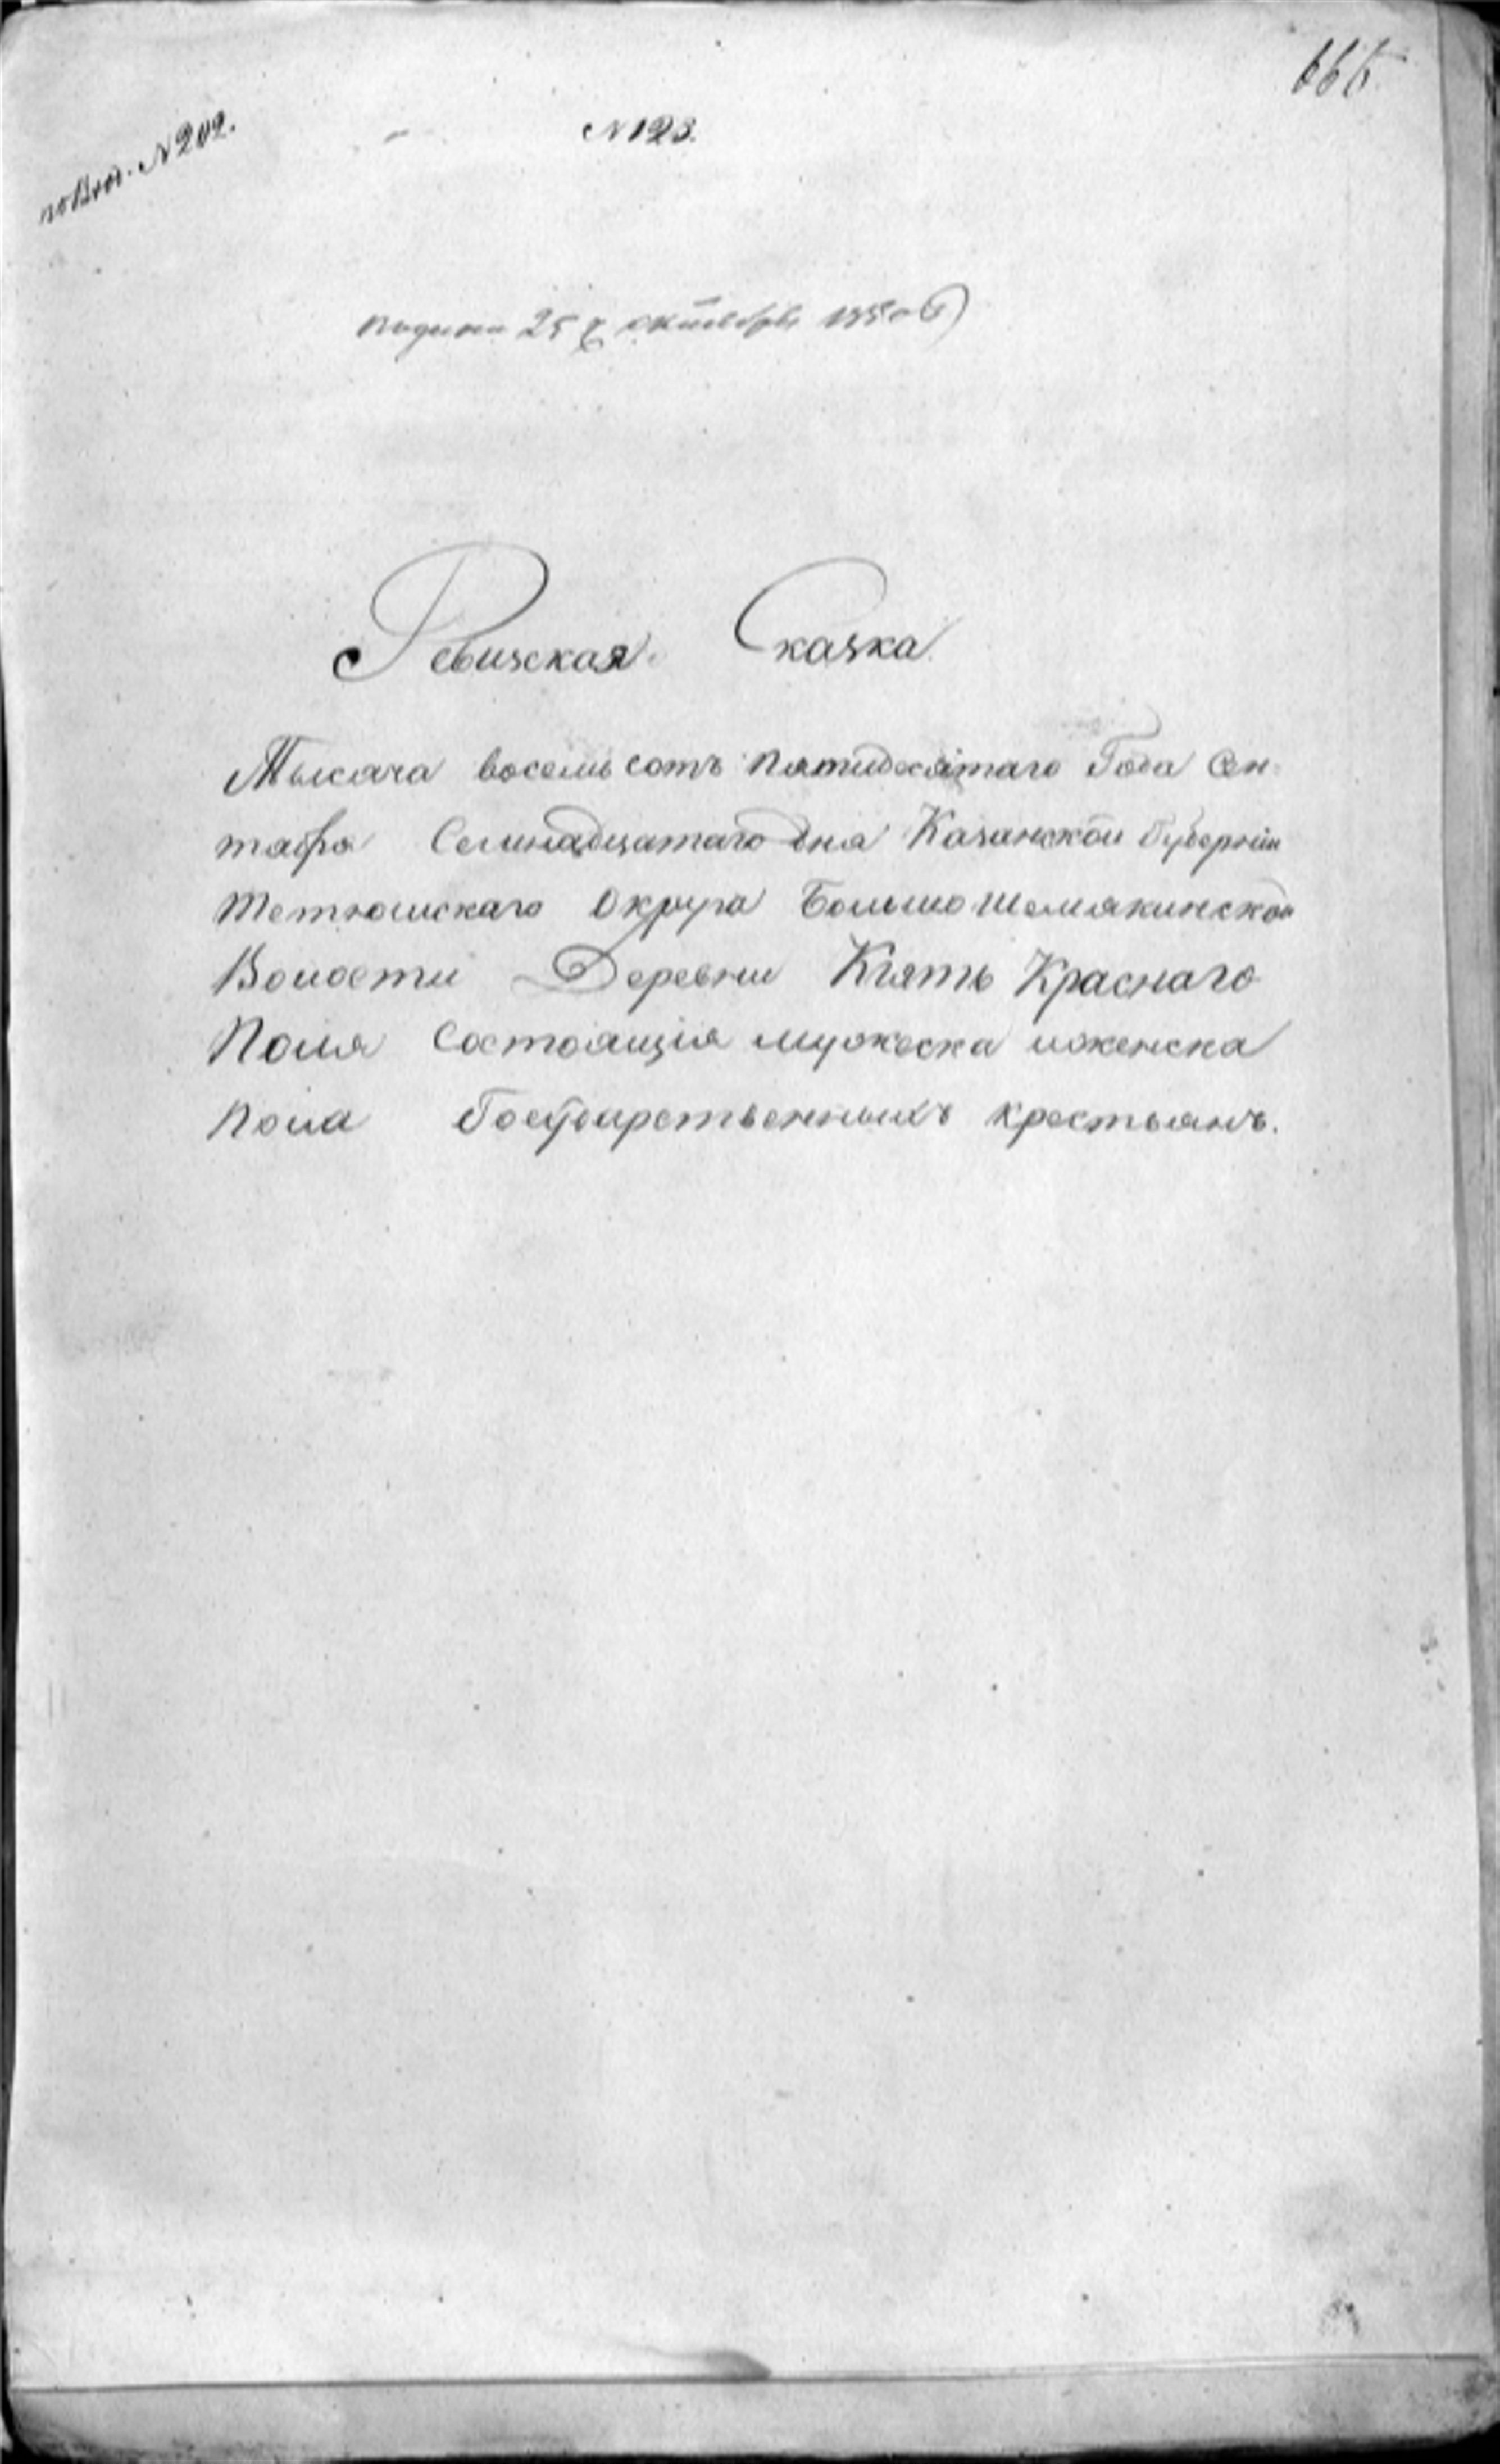 666
по Вход. № 202.
№ 123.
подана 25 октября 1850
Ревизская Сказка
Тысяча восемь сотъ пятидесятаго Года Сен-
тября Семнадцатаго дня Казанской Губерніи
Тетюшскаго Округа Большошемякинской
Волости Деревни Кіять Краснаго
Поля Состоящія мужеска и женска
пола Государственныхъ крестьянъ.